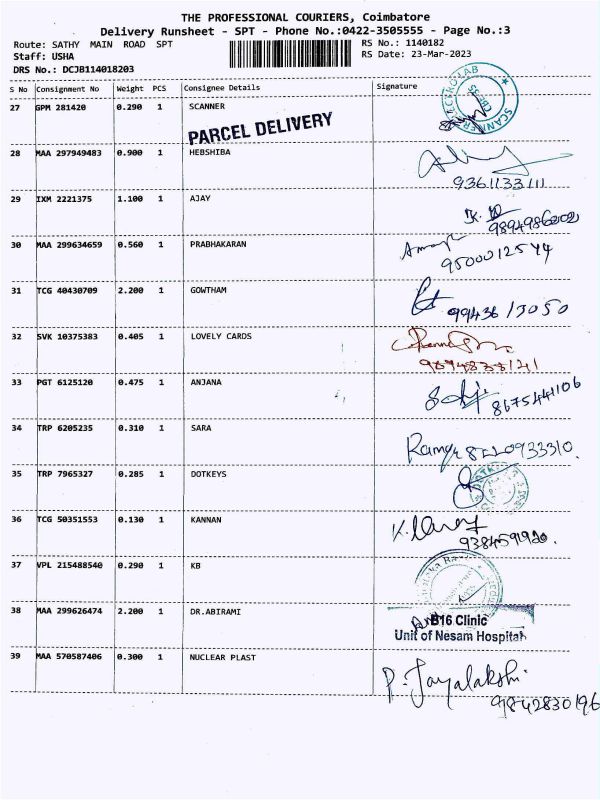 THE PROFESSIONAL COURIERS, Coimbatore
Delivery Runsheet - SPT - Phone No.:0422-3505555 - Page No.:3
Route: SATHY MAIN ROAD SPT
RS No.: 1140182
Staff: USHA
RS Date: 23-Mar-2023
DRS No.: DCJB114018203
S No Consignment No Weight PCS Consignee Details Signature
27 GPM 281420 0.290 1 SCANNER
PARCEL DELIVERY
28 MAA 297949483 0.900 1 HEBSHIBA
9361133111
29 IXM 2221375 1.100 1 AJAY
30 MAA 299634659 0.560 1 PRABHAKARAN
9500012544
31 TCG 40430709 2.200 1 GOWTHAM
99436 13050
32 SVK 10375383 0.405 1 LOVELY CARDS
33 PGT 6125120 0.475 1 ANJANA
8675441106
34 TRP 6205235 0.310 1 SARA
35 TRP 7965327 0.285 1 DOTKEYS
36 TCG 50351553 0.130 1 KANNAN
37 VPL 215488540 0.290 1 KB
38 MAA 299626474 2.200 1 DR.ABIRAMI
B16 Clinic
Unit of Nesam Hospital
39 MAA 570587406 0.300 1 NUCLEAR PLAST
P. Jayalakshi
9842830196